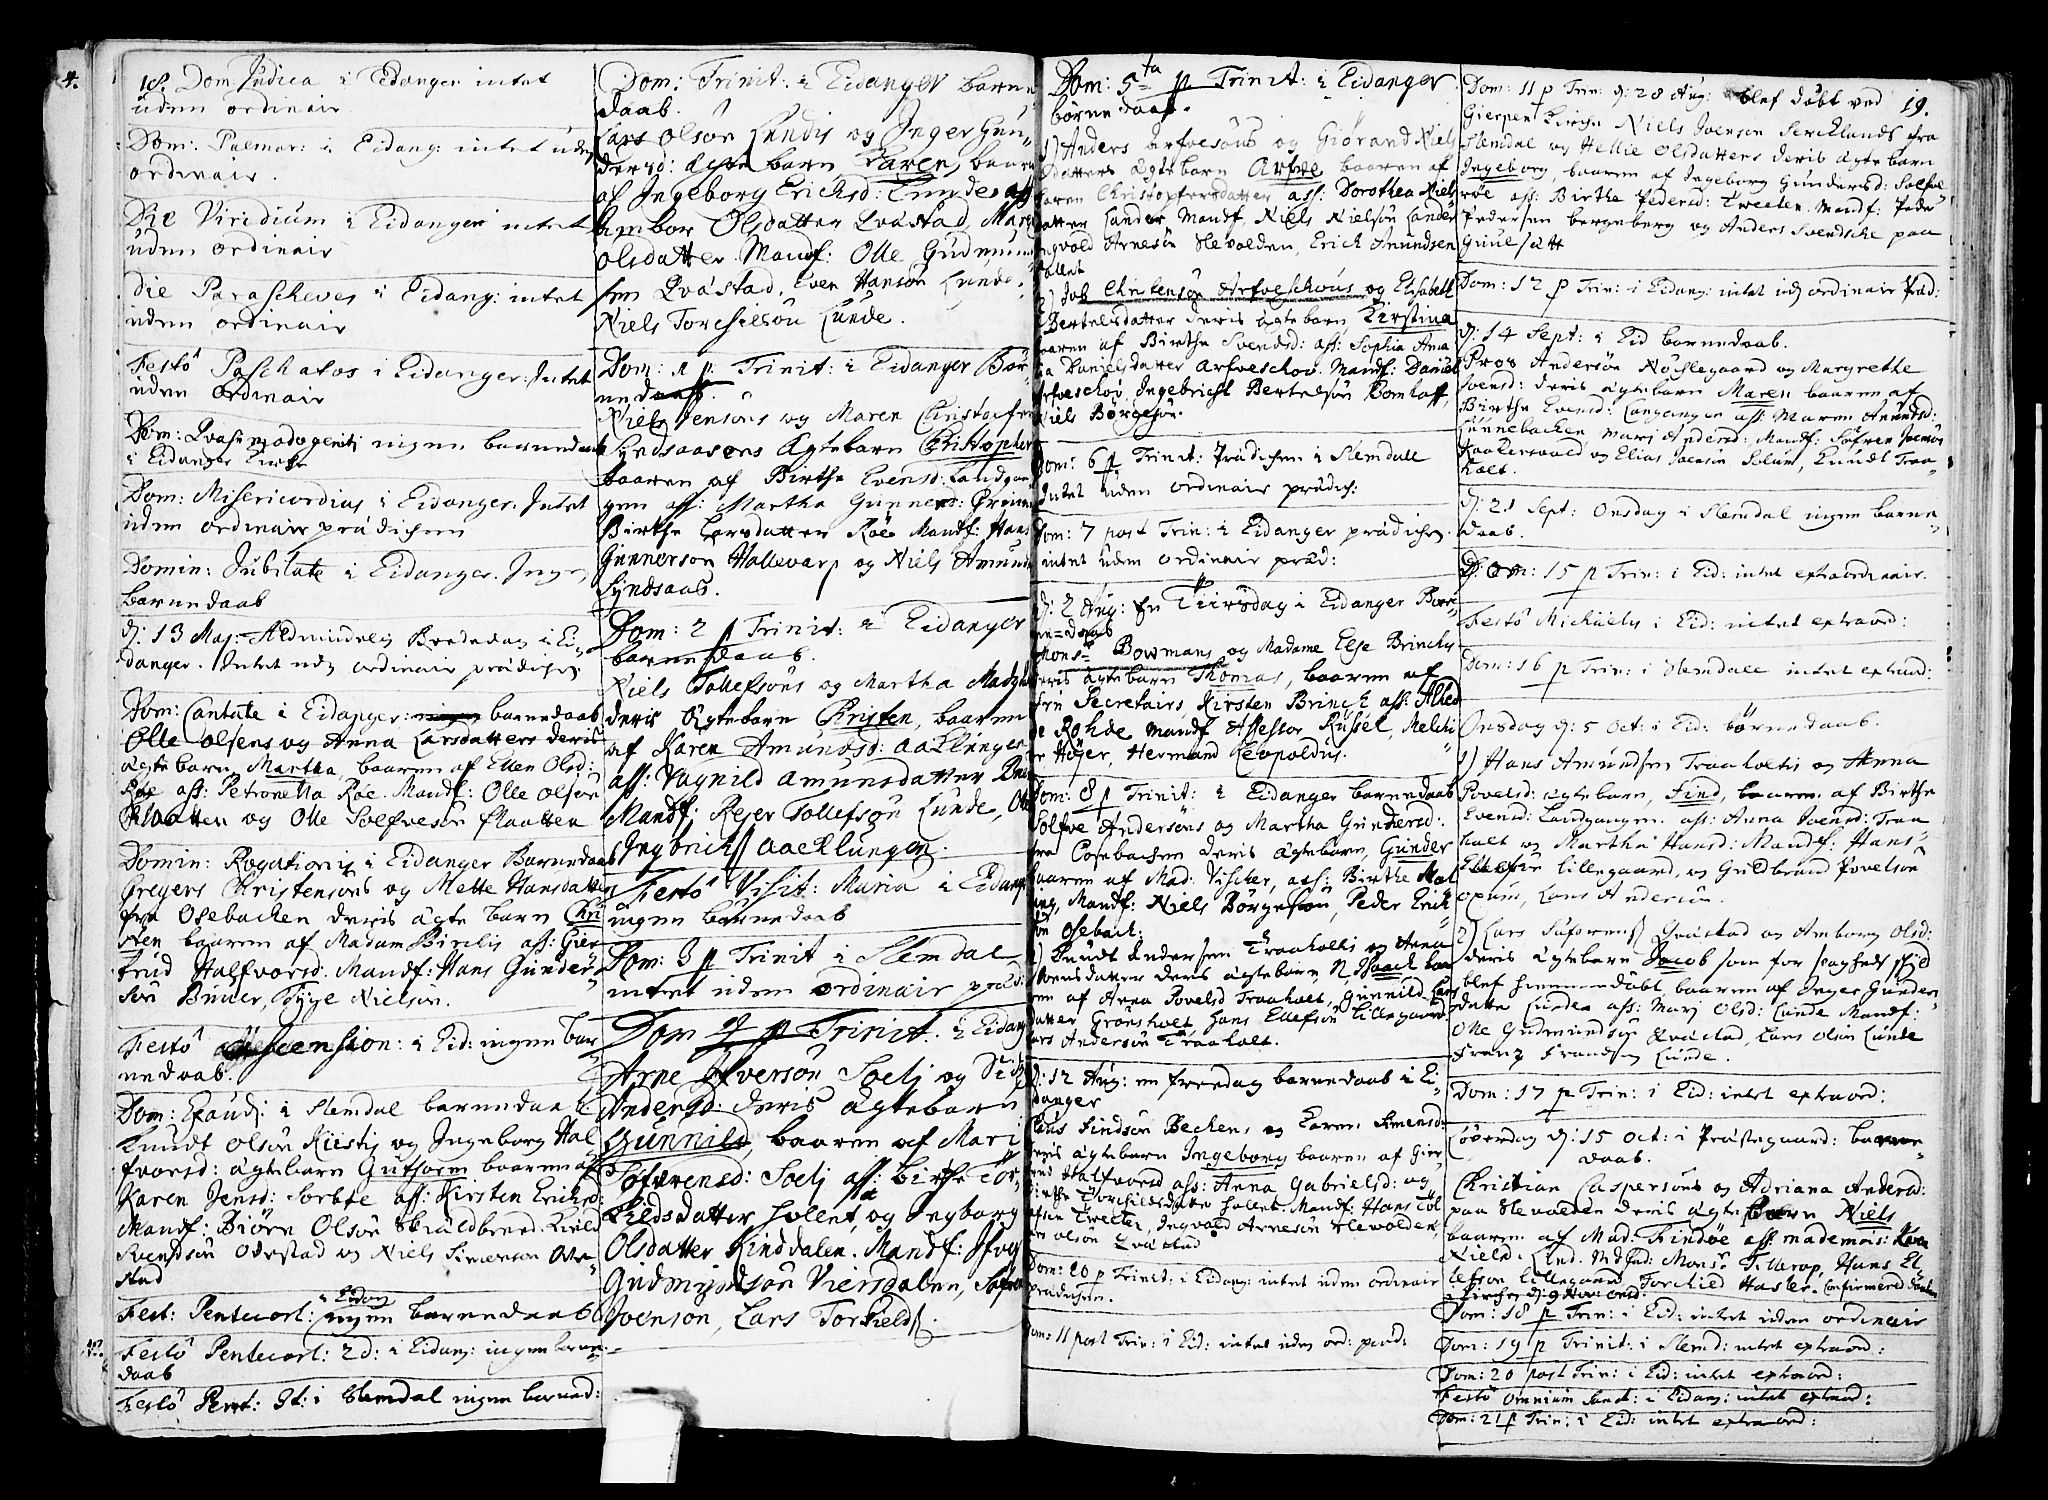 18. Dom Judica i Eidanger intet
uden ordinair
Dom: Palmar: i Eidang: intet uden
ordinair.
Die Viridium i Eidanger intet
uden ordinair
Die Parascheves i Eidang: intet
uden ordinair
Festo Paschatos i Eidanger: Intet
uden ordinair
Dom: Qvasimodogeniti ingen barnedaab
i Eidanger Kirche
Dom: Misericordias i Eidanger. Intet
uden ordinair prædichen
Domin: Jubilate i Eidanger. Ingen
barnedaab
d: 13 Maj: Almindelig Bededag i Ei-
danger. Intet uden ordinair prædichen
Dom: Cantate i Eidanger: barnedaab
Olle Olsens og Anna Larsdatters deris
ægte barn Martha, baaren af Ellen Olsd:
Røe ass: Petronella Røe. Mandf: Olle Olsøn
Flaatten og Olle Solfvesøn Flaatten
Domin: Rogationis i Eidanger Barnedaab
Gregers Christensøns og Mette Hansdatter
fra Osebachen deris ægte barn Chri
sten baaren af Madam ass: Gier
trud Halfvorsd. Mandf: Hans Gunder-
søn, Tyge Nielsøn.
Festo Ascension: i Eid: ingen bar
nedaab.
Dom: Exaudi i Slemdal barnedaab
Knudt Olsøn og Ingeborg Hal
fvorsd: ægtebarn Guthorm baaren af
Karen Jensd: ass: Kirsten Erichsd:
Mandf: Biørn Olsøn
Svendsøn og Niels Simensøn
stad
Fest: Pentecost: i Eidang ingen barnedaab
Festo Pentecost: 2d: i Eidang: ingen barne-
daab
Festo Pent: 3t: i Slemdal ingen barned:
Dom: Trinit: i Eidanger barne
daab.
Lars Olsøn Lundis og Inger Gun-
dersd: ægte barn Karen, baaren
af Ingeborg Erichsd: Lunde, ass
Ambor Olsdatter Qvastad, Mari
Olsdatter Mandf: Olle Gudmund
sen Qvastad, Even Hansøn Lunde.
Niels Torchilsøn Lunde.
Dom: 1 p: Trinit: i Eidanger Bør-
nedaab.
Niels Jensøns og Maren Christopfers
Lyndsaasens ægtebarn Christopher
baaren af Birthe Evensd: Landgan
gen ass: Martha Gunnersd:
Birthe Larsdatter Røe Mandf: Hans
Gunnersøn Hallevarp og Niels Amunds
Lyndsaas.
Dom: 2 p Trinit: i Eidanger
barnedaab.
Niels Tollefsøns og Martha Madz
deris ægtebarn Christen, baaren
af Karen Amundsd: Aaklungen
ass: Vagnild Amunsdatter
Mandf: Rejer Tollefsøn Lunde,
Ingbrich Aacklungen.
Festo Visit: Maria i Eidang
ingen barnedaab
Dom: 3 p Trinit i Slemdal
intet uden ordinair præd:
Dom 4 p Trinit: i Eidang
Arne Iversøn Soeli og
Andersd: deris ægtebarn
Gunnild, baaren af Mari
Sofrensd: Soeli ass: Birthe Tor-
kildsdatter Hollen og Ingborg
Olsdatter Kinddalen. Mandf:
Gudmundsøn Viersdalen,
Joensøn, Lars Torkields.
Dom: 5ta p Trinit: i Eidanger
børnedaab.
1) Anders Arfvesøns og Giørand Niels
datters ægtebarn Arfve baaren af
Karen Christopfersdatter ass: Dorothea Niels
datter Lander Mandf: Niels Nielsøn Lander
Ingvold Arnesøn Hevolden, Erich Amundsen
Tollet
2) Job Christensøn Arfveschous og Elisabeth
Bertelsdatter deris ægtebarn, Kirstina
baaren af Birthe Svendsd: ass: Sophia
Danielsdatter Arfveschov. Mandf: Daniel
Arfveschov, Ingebricht Bertelsøn Bomhoff,
Niels Børgesøn.
Dom: 6 p Trinit: Prædichen i Slemdall
Intet uden ordinair prædich:
Dom: 7 post Trin: i Eidanger prædichen.
intet uden ordinair præd:
d: 2 Aug: en Tiirsdag i Eidanger Bar-
ne-daab
Monsr Bowmans og Madame Else Brinchs
deris ægtebarn Thomas, baaren af
Secretairs, Kirsten Brinch ass:
de Rohde Mandf Assessor Russel,
Høyer, Hermand Leopoldus.
Dom: 8 p Trinit: i Eidanger barnedaab
Solfve Andersøns og Martha Gundersd:
fra Osebachen deris ægtebarn, Gunder
baaren af Mad: Vischer, ass: Birthe
Mandf: Niels Børgesøn, Peder Erich
søn Osebach.
2) Knudt Andersen Traaholtis og Anna
Svensdatter deris ægtebarn, N. Isaach baa
ren af Anna Povelsd Traaholt, Gunnild Lars
datter Grønsholt, Hans Ellefsøn Lillegaard
Lars Andersøn Traaholt.
d: 12 Aug: en freedag barnedaab i Ei-
danger
Findsøn Bechens og Karen Simensd:
deris ægtebarn Ingeborg baaren af Gier-
trud Halfvorsd ass: Anna Gabrielsd: og
Birthe Torchildsdatter Hollen. Mandf: Hans Tol
lefsen Tveeter, Ingvold Arnesøn Hevolden,
Olsøn Qvastad
Dom: 10 p Trinit: i Eidang: intet uden ordinair
prædichen.
Dom: 11 post Trin: i Eid: intet uden ord: præd:
19.
Dom: 11 p Trin: d: 28 Aug: blef døbt ved
Gierpen Kirche Niels Joensøn fra
Slemdal og Hellie Olsdatters deris ægte barn
Ingeborg, baaren af Ingeborg Gundersd: Solfve
røe ass: Birthe Pedersd: Tveeten. Mandf: Peder
Pedersen bergeberg og Anders Svendsche paa
Guulsætt
Dom: 12 p Trin: i Eidang: intet uden ordinair Præd:
d: 14 Sept: i Eid barnedaab.
Proos Andersøn Nøchlegaard og Margrethe
Svensd: deris ægtebarn Maren baaren af
Birthe Evensd: Langangen ass: Maren Amundsd:
Lunnebachen, Marj Andersd: Mandf: Søfren Joensøn
og Elias Joensøn Solum, Knudt Traa-
holt.
d: 21 Sept: Onsdag i Slemdal ingen barne-
daab.
Dom: 15 p Trin: i Eid: intet extraordinair.
Festo Michaelis i Eid: intet extraord:
Dom: 16 p Trin: i Slemdall intet extraord:
Onsdag d: 5 Oct: i Eid: børnedaab.
1) Hans Amundsen Traaholtis og Anna
Povelsd: ægtebarn, Find, baaren af Birthe
Evensd: Landgangen ass: Anna Svensd: Traa
holt og Martha Hansd: Mandf: Hans
Ellefsøn Lillegaard, og Guldbrand Povelsøn
Lars Andersøn.
2) Lars Safrens Qvastad og Amborg Olsd:
deris ægtebarn Jacob som for svaghed skyld
blef hiemmedøbt baaren af Inger Gunders
datter Lunder ass: Marj Olsd: Lunde Mandf:
Olle Gudmundsøn Qvastad, Lars Olsøn Lunde
Franz Frandsøn Lunde.
Dom: 17 p Trin: i Eid: intet extraord:
Løverdag d: 15 Oct: i Præstegaard: barne-
daab.
Christian Caspersøns og Adriana Andersd:
paa Hevolden deris ægte barn Niels
baaren af Mad: Findøe ass: mademois: Karen
Nielsd: Lund. Mdf: Monsr Tillerop, Hans El
lefsøn Lillegaard Torchild Hasler. Confirmered Daaben
i Kirchen d: 9 Nov:
Dom: 18 p Trin: i Eid: intet uden ordinair
Dom: 19 p Trinit: i Slemd: intet extraord:
Dom: 20 post Trin: i Eid: intet extraord:
Festo Omnium Sanct: i Eidang: intet extraord:
Dom: 21 p Trin: i Eid: intet extraord: